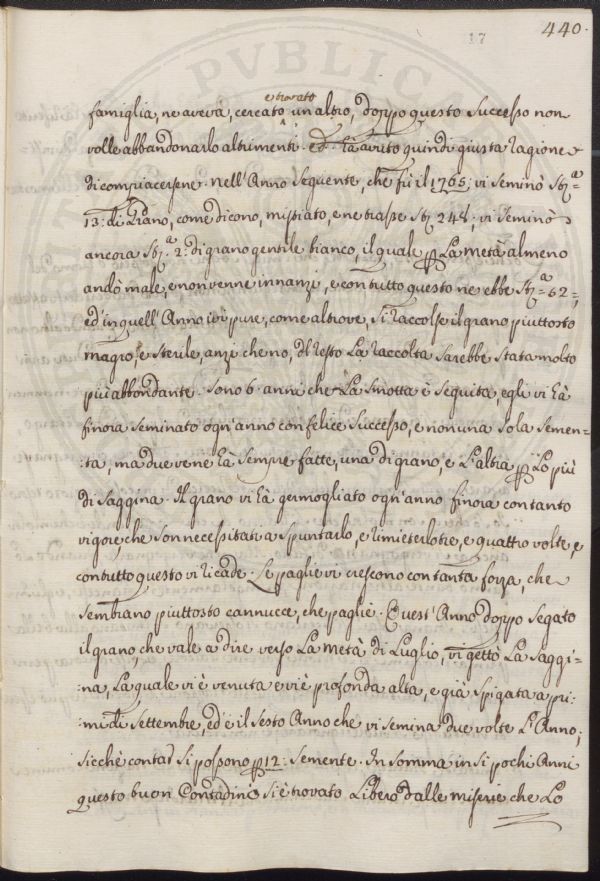 440.
17
PVBLICA
e trovato
famiglia, ne aveva, cercato un altro, doppo questo successo non
volle abbandonarlo altrimenti. Ed hà avuto quindi giusta ragione
di compiacersene. Nell'Anno seguente, che fù il 1765; vi seminò St.ª
13: di Grano, come dicono, mistiato, e ne trasse St. 244; vi seminò
ancora St.ª 2: di grano gentile bianco, il quale p La metà almeno
andò male, e non venne innanzi, e con tutto questo ne ebbe St.ª 62,
ed in quell'Anno ivi pure, come altrove, si raccolse il grano piuttosto
magro, e sterile, anzi che no, del resto La raccolta sarebbe stata molto
più abbondante. Sono 6 anni che La Smotta è seguita, egli vi hà
finora seminato ogn'anno con felice successo, e non una sola semen-
:ta, ma due ve ne hà sempre fatte, una di grano, e L'altra p Lo più
di Saggina. Il grano vi hà germogliato ogn'anno finora con tanto
vigore, che son necessitati a spuntarlo, e rimieterlo tre, e quattro volte, e
con tutto questo vi ricade. Le paglie vi crescono con tanta forza, che
sembrano piuttosto cannucce, che paglie. Quest'Anno doppo segato
il grano, che vale a dire verso La metà di Luglio, vi gettò La Saggi-
:na, La quale vi è venuta e vi è profonda alta, e già spigata a pri-
:mi di Settembre, ed è il sesto Anno che vi semina due volte L'Anno;
sicchè contar si possono p 12: semente. In somma in sì pochi Anni
questo buon Contadino si è trovato Libero dalle miserie che Lo